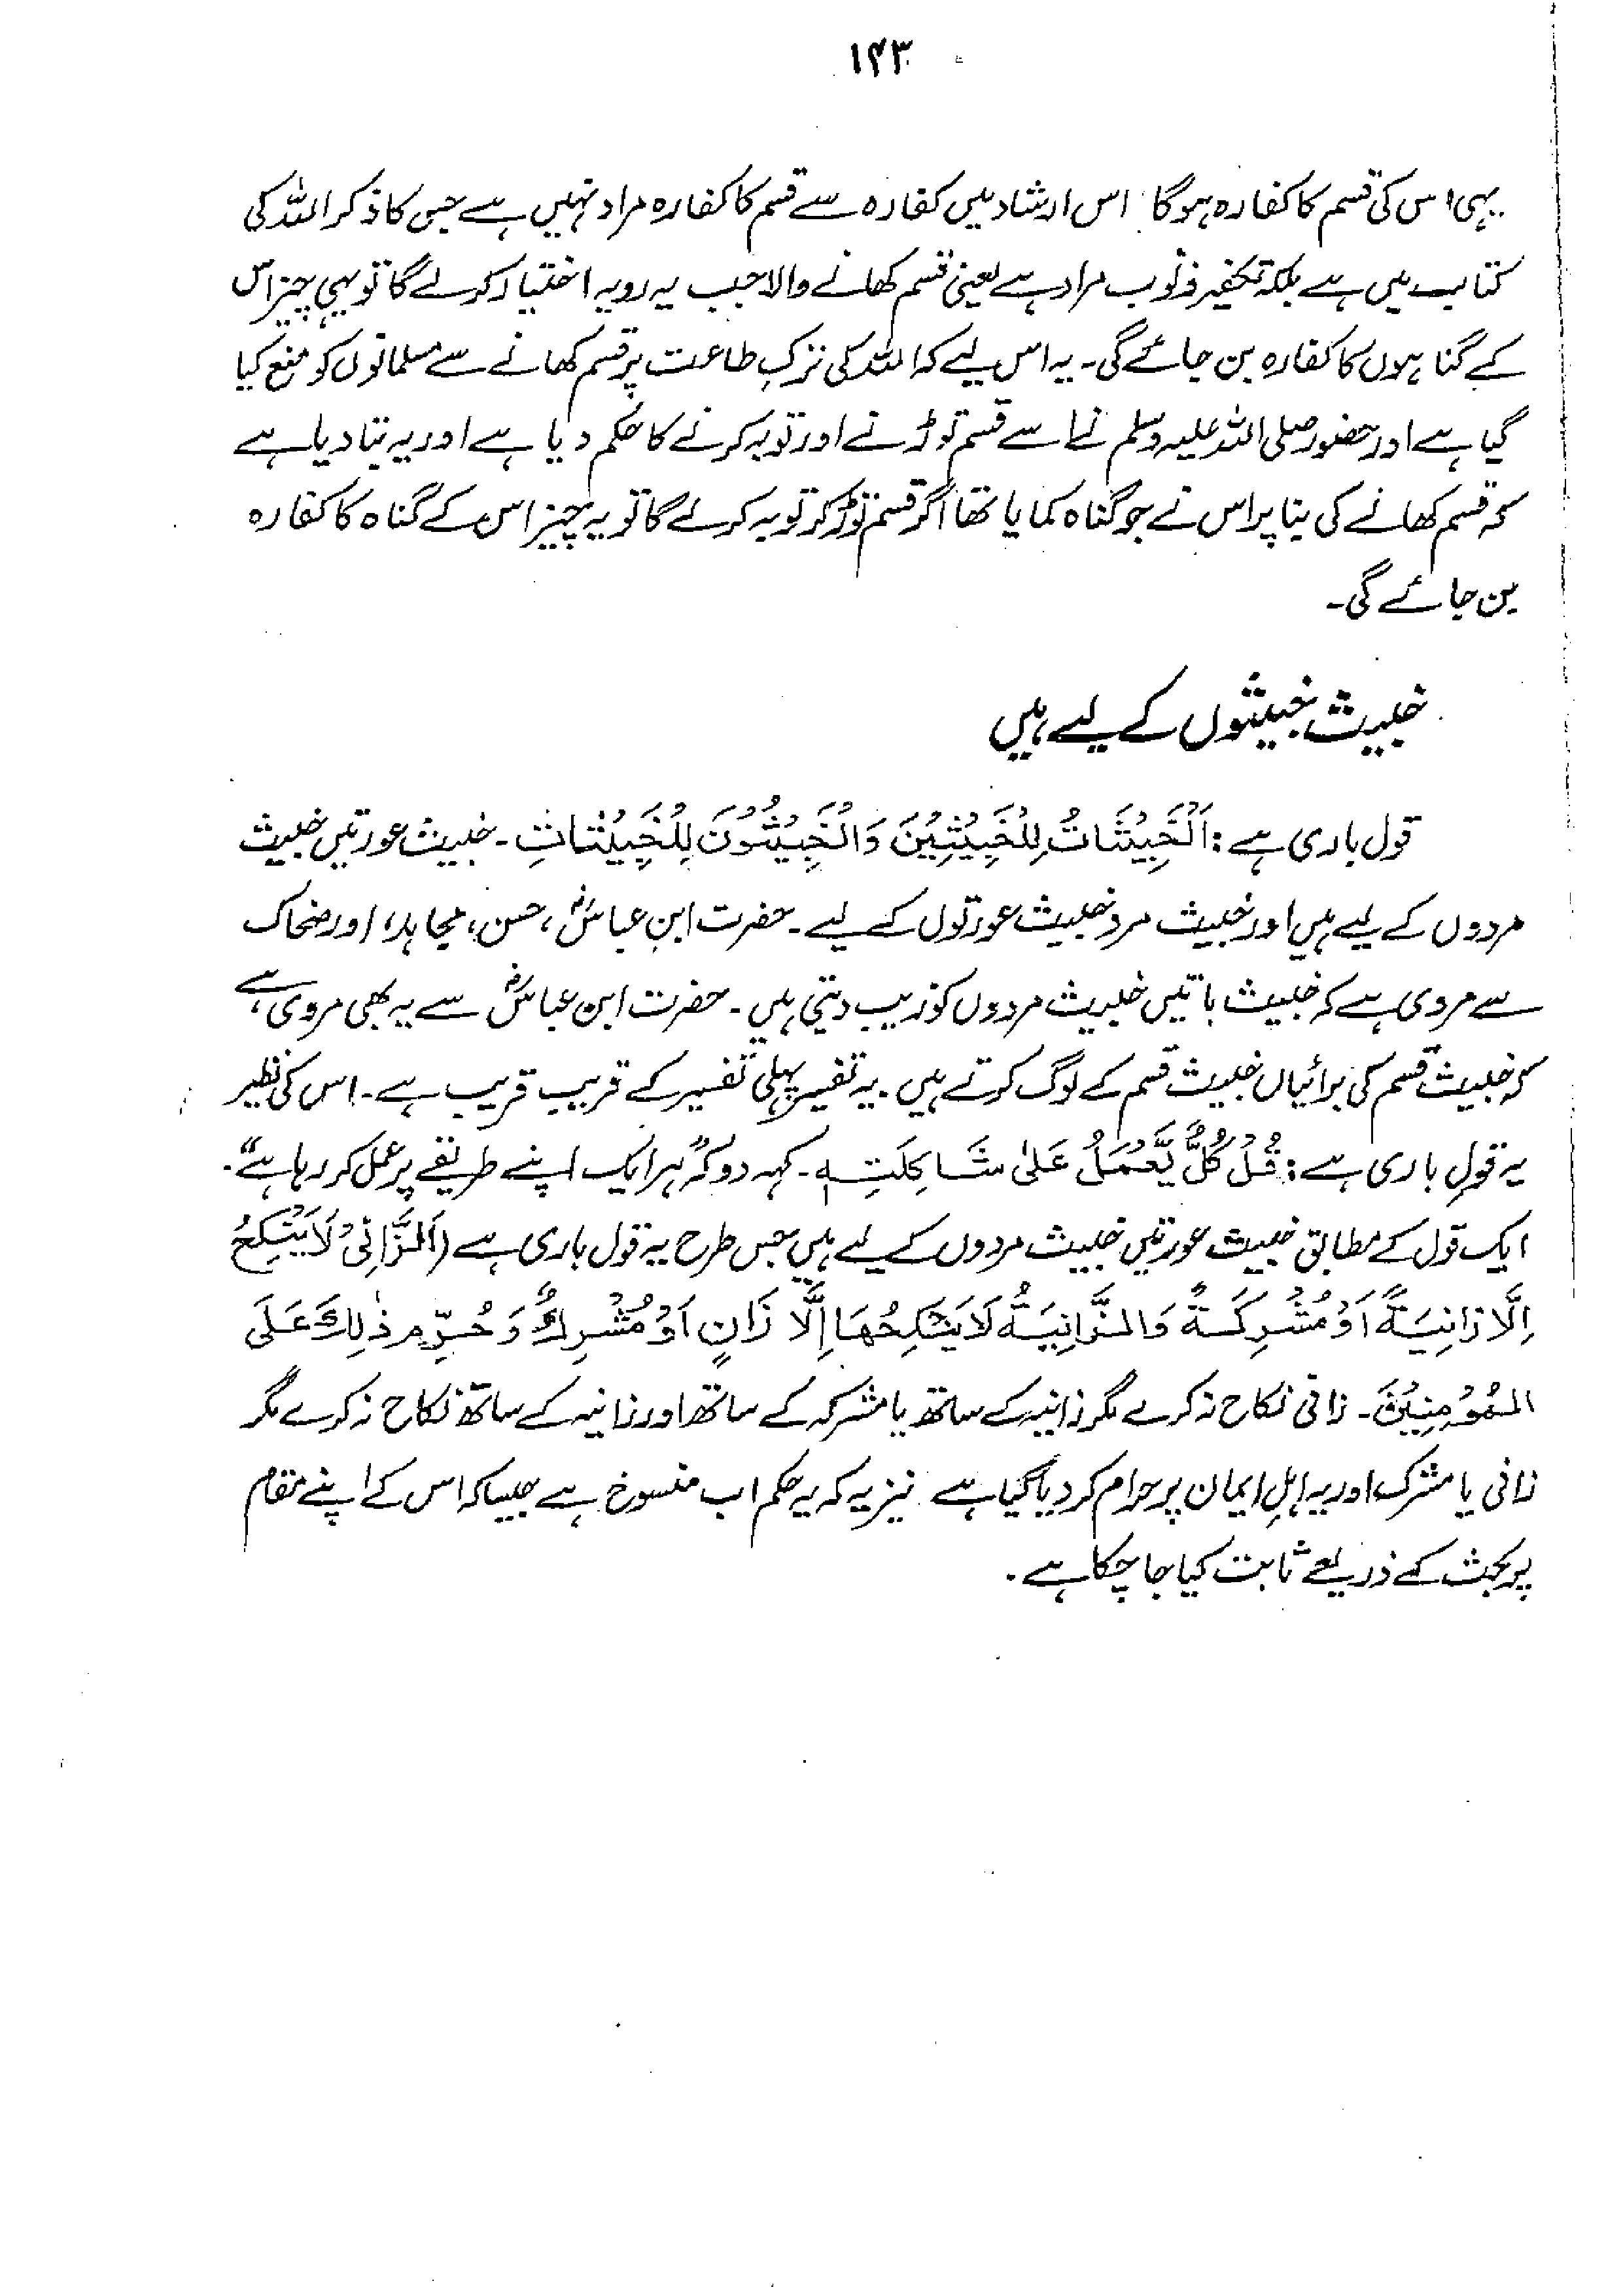 ۱۴۳
یہی اس کی قسم کا کفارہ ہوگا۔ اس ارشاد میں کفارہ سے قسم کا کفارہ مراد نہیں ہے جس کا ذکر اللہ کی
کتاب میں ہے بلکہ تکفیر ذنوب مراد ہے یعنی قسم کھانے والا جب یہ رویہ اختیار کر لے گا تو یہی چیز اس
کے گناہوں کا کفارہ بن جائے گی۔ یہ اس لیے کہ اللہ کی ترکِ طاعت پر قسم کھانے سے مسلمانوں کو منع کیا
گیا ہے اور حضور صلی اللہ علیہ وسلم نے اسے قسم توڑنے اور توبہ کرنے کا حکم دیا ہے اور یہ بتا دیا ہے
کہ قسم کھانے کی بنا پر اس نے جو گناہ کمایا تھا اگر قسم توڑ کر توبہ کرلے گا تو یہ چیز اس کے گناہ کا کفارہ
بن جائے گی۔
خبیث خبیثوں کے لیے ہیں
قول باری ہے: اَلْخَبِیْثَاتُ لِلْخَبِیْثِیْنَ وَالْخَبِیْثُوْنَ لِلْخَبِیْثَاتِ۔ خبیث عورتیں خبیث
مردوں کے لیے ہیں اور خبیث مرد خبیث عورتوں کے لیے۔ حضرت ابنِ عباسؓ، حسن، مجاہد، اور ضحاک
سے مروی ہے کہ خبیث باتیں خبیث مردوں کو زیب دیتی ہیں۔ حضرت ابن عباسؓ سے یہ بھی مروی ہے
کہ خبیث قسم کی برائیاں خبیث قسم کے لوگ کرتے ہیں۔ یہ تفسیر پہلی تفسیر کے قریب قریب ہے۔ اس کی نظیر
یہ قولِ باری ہے: قُلْ كُلٌّ یَّعْمَلُ عَلٰی شَاكِلَتِهٖ۔ کہہ دو کہ "ہر ایک اپنے طریقے پر عمل کر رہا ہے"۔
ایک قول کے مطابق خبیث عورتیں خبیث مردوں کے لیے ہیں جس طرح یہ قول باری ہے (اَلزَّانِیْ لَا یَنْكِحُ
اِلَّا زَانِیَةً اَوْ مُشْرِكَةً وَالزَّانِیَةُ لَا یَنْكِحُهَا اِلَّا زَانٍ اَوْ مُشْرِكٌ وَحُرِّمَ ذٰلِكَ عَلَی
الْمُؤْمِنِیْنَ۔ زانی نکاح نہ کرے مگر زانیہ کے ساتھ یا مشرکہ کے ساتھ اور زانیہ کے ساتھ نکاح نہ کرے مگر
زانی یا مشرک اور یہ اہلِ ایمان پر حرام کر دیا گیا ہے۔ نیز یہ کہ یہ حکم اب منسوخ ہے جیسا کہ اس کے اپنے مقام
پر بحث کے ذریعے ثابت کیا جا چکا ہے۔